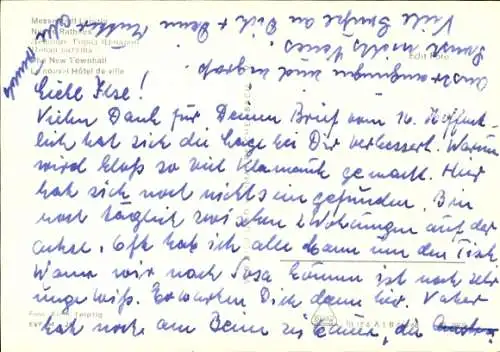 Messestadt Leipzig
Neues Rathaus
The New Townhall
Le nouvel Hôtel de ville
Echt Foto
Liebe Ilse!
Vielen Dank für Deinen Brief vom 16. Hoffent-
lich hat sich die Lage bei Dir verbessert. Warum
wird bloß so viel Klamauk gemacht. Hier
hat sich noch nichts eingefunden. Bin
noch täglich zwischen 2 Wohnungen auf der
Achse. Oft hab ich alle Mann um den Tisch.
Wann wir nach Sosa können ist noch sehr
ungewiß. Erwarten Dich dann hier. Vater
hat noch am Bein zu tun, die
Anstrengungen sind zu groß
Sonst nichts Neues.
Viele Grüße an Dich + Deine Mutter
Leipzig